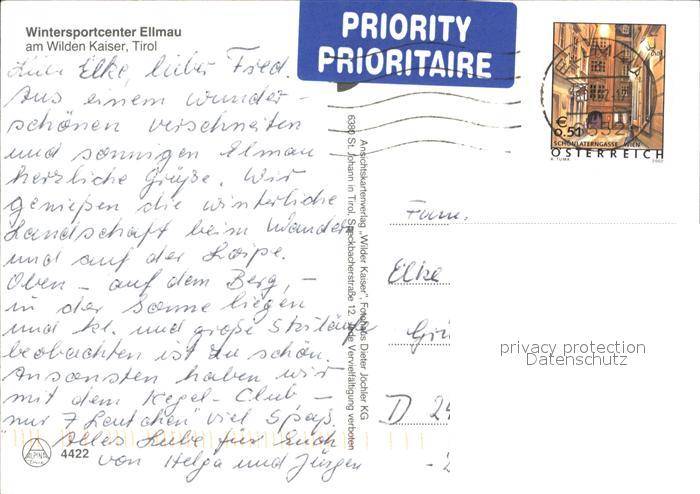 Wintersportcenter Ellmau
am Wilden Kaiser, Tirol
PRIORITY
PRIORITAIRE
Liebe Elke, lieber Fred.
Aus einem wunder-
schönen verschneiten
und sonnigen Ellmau
herzliche Grüße. Wir
genießen die winterliche
Landschaft beim Wandern
und auf der Loipe.
Oben - auf dem Berg, -
in der Sonne liegen
und kl. und große Skiläufer
beobachten ist zu schön.
Ansonsten haben wir
mit dem Kegel-Club -
nur 7 Leutchen" viel Spaß.
Alles Liebe für Euch
von Helga und Jürgen
4422
Ansichtskartenverlag „Wilder Kaiser", Fotohaus Dieter Jöchler KG
6380 St. Johann in Tirol, Speckbacherstraße 12, Jede Vervielfältigung verboten
€
0.51
SCHÖNLATERNGASSE WIEN
ÖSTERREICH
A. TUMA
2002
Fam.
Elke
Grü
D 24
privacy protection
Datenschutz